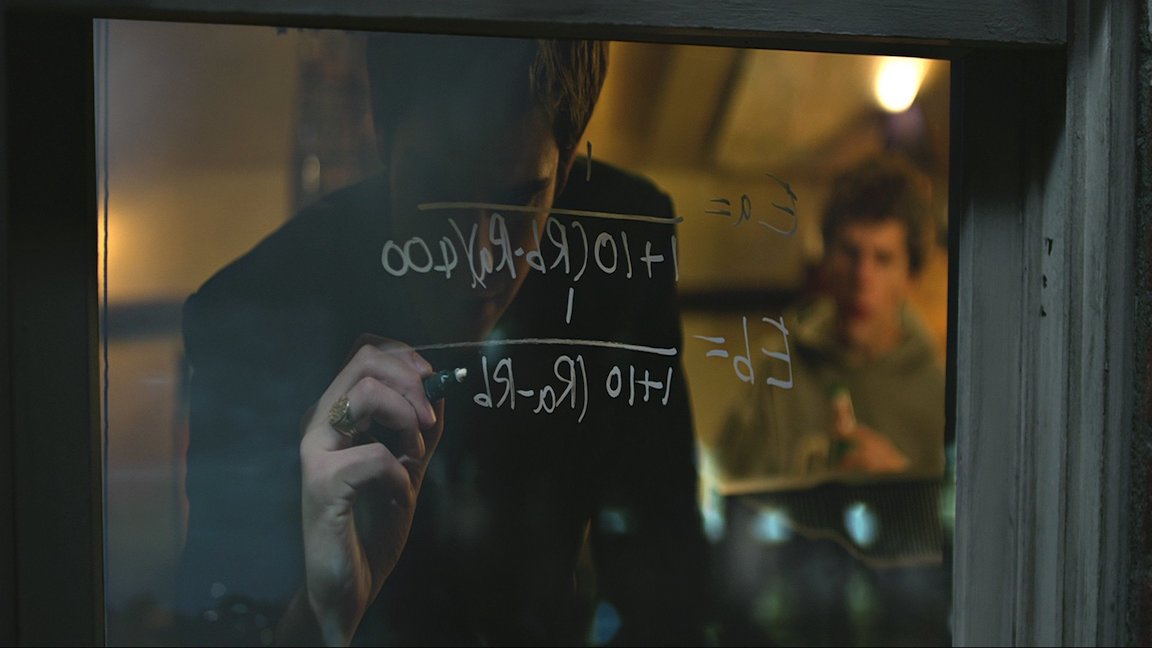 1
Ea =
1+10(Rb-Ra)/400
1
Eb =
1+10(Ra-Rb